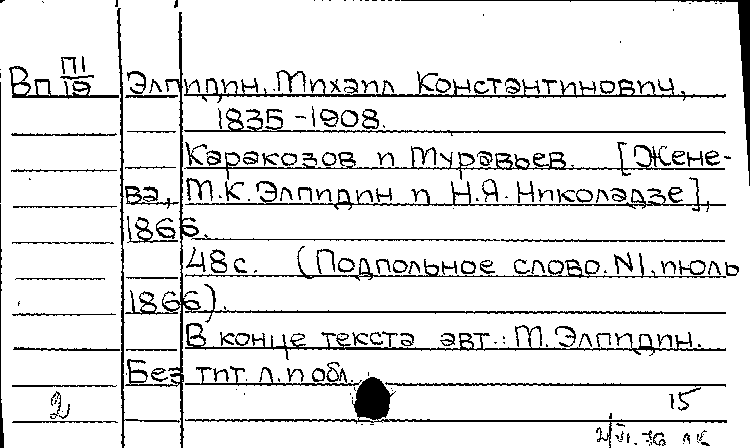 Вп П1/19 Элпидин, Михаил Константинович,
1835-1908.
Каракозов и Муравьев. [Жене-
ва, М.К. Элпидин и Н.Я. Николадзе],
1866.
48 с. (Подпольное слово. N1. июль
1866).
В конце текста авт.: М. Элпидин.
Без тит. л. и обл.
2 15